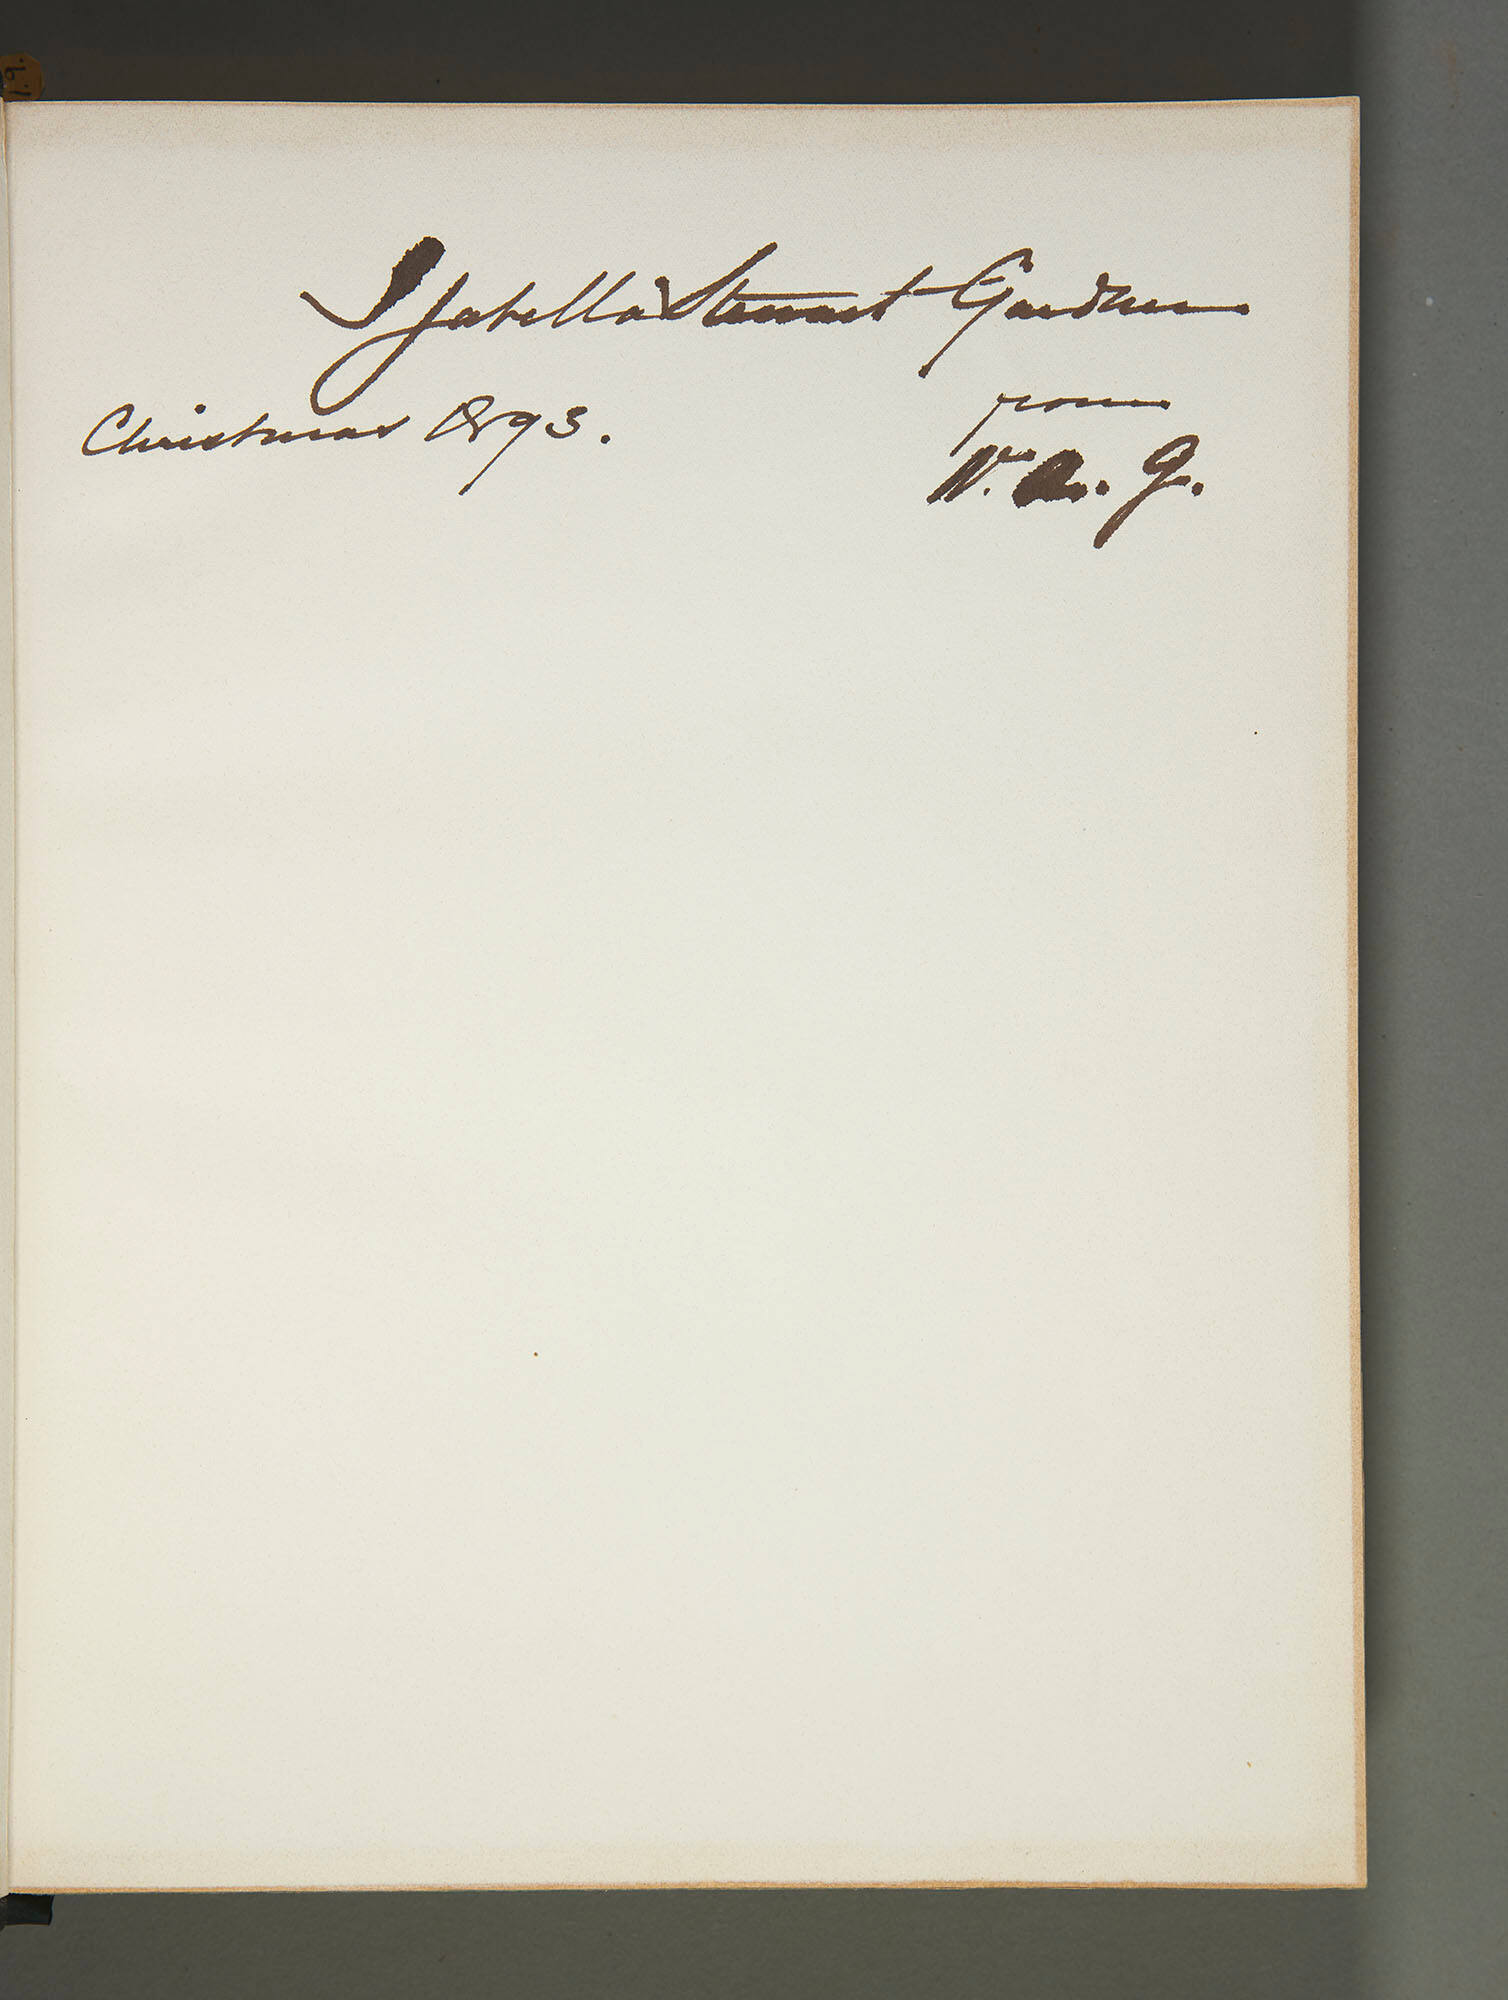 Isabella Stewart Gardner
from
Christmas 1893.
W. A. G.